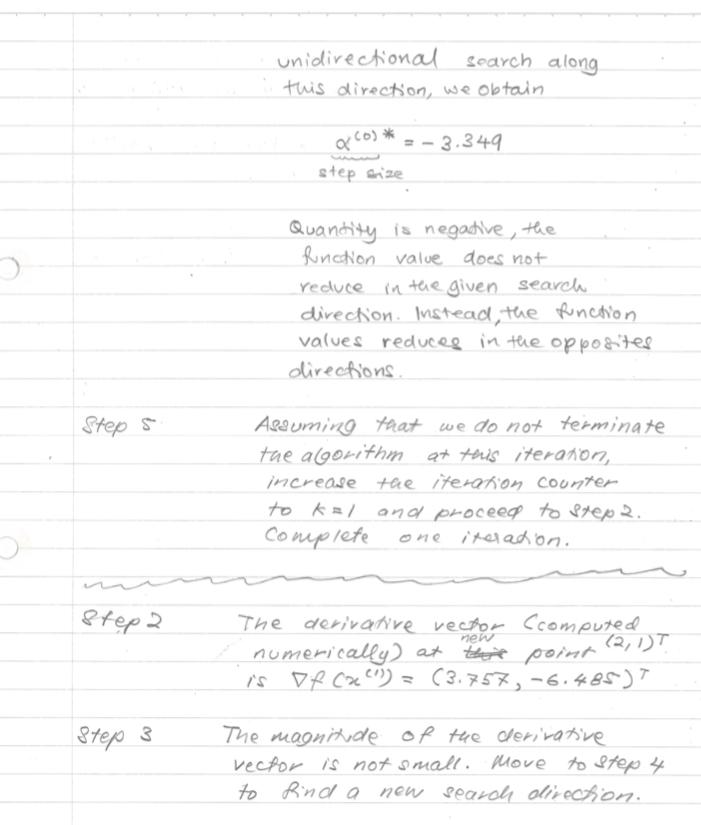 unidirectional search along
this direction, we obtain
α⁽⁰⁾* = - 3.349
step size
Quantity is negative, the
function value does not
reduce in the given search
direction. Instead, the function
values reduces in the opposites
directions.
Step 5 Assuming that we do not terminate
the algorithm at this iteration,
increase the iteration counter
to k=1 and proceed to Step 2.
Complete one iteration.
Step 2 The derivative vector (computed
numerically) at new point (2,1)ᵀ
is ∇f(x⁽¹⁾) = (3.757, -6.485)ᵀ
Step 3 The magnitude of the derivative
vector is not small. Move to Step 4
to find a new search direction.